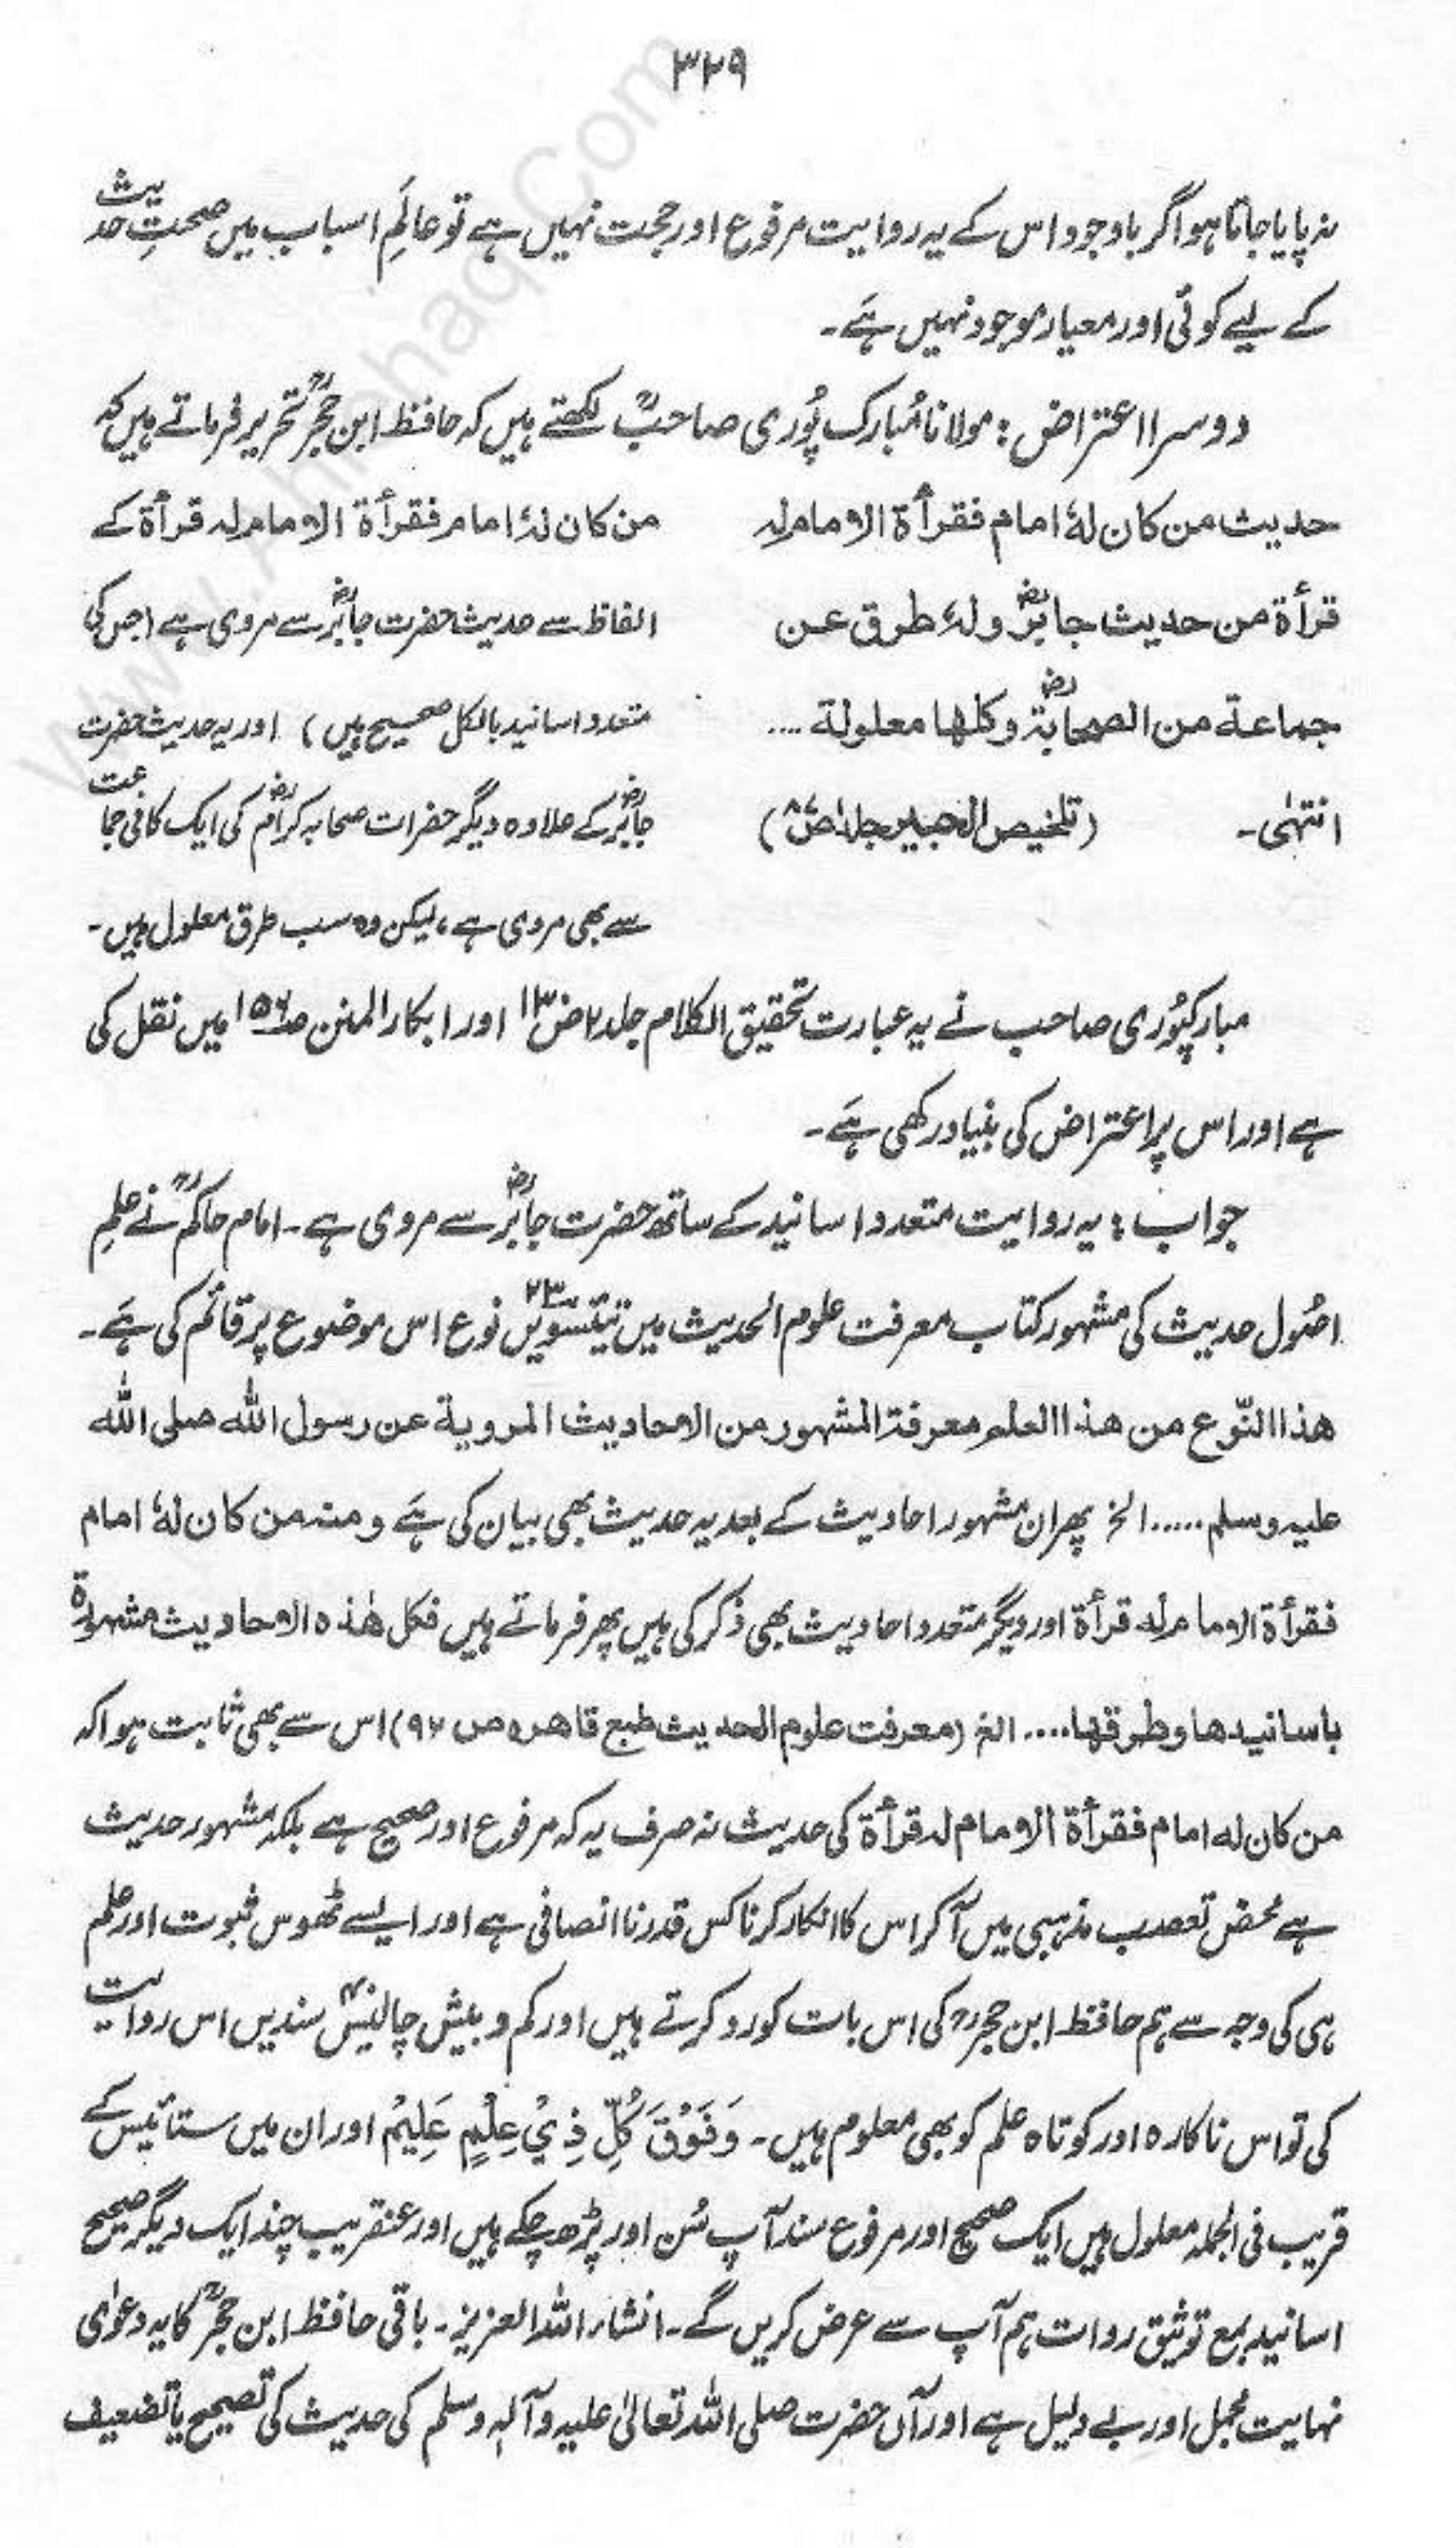 ۳۲۹
نہ پایا جاتا ہو اگر باوجود اس کے یہ روایت مرفوع اور حجت نہیں ہے تو عالَمِ اسباب میں صحتِ حدیث
کے لیے کوئی اور معیار موجود نہیں ہے۔
دوسرا اعتراض: مولانا مُبارک پُوری صاحبؒ لکھتے ہیں کہ حافظ ابن حجرؒ تحریر فرماتے ہیں کہ
حدیث من کان لہٗ امام فقرأة الامام لہ
قرأة من حدیث جابرؓ ولہٗ طرق عن
جماعة من الصحابةؓ وکلھا معلولة ....
انتہٰی۔ (تلخیص الحبیر جلد ص)
من کان لہٗ امام فقرأة الامام لہ قرأة کے
الفاظ سے حدیث حضرت جابرؓ سے مروی ہے (جس کی
متعدد اسانید بالکل صحیح ہیں) اور یہ حدیث حضرت
جابرؓ کے علاوہ دیگر حضرات صحابہ کرامؓ کی ایک کافی جماعت
سے بھی مروی ہے، لیکن وہ سب طرق معلول ہیں۔
مبارکپُوری صاحب نے یہ عبارت تحقیق الکلام جلد ۲ ص۱۳ اور ابکار المنن ص۱۵۶ میں نقل کی
ہے اور اس پر اعتراض کی بنیاد رکھی ہے۔
جواب: یہ روایت متعدد اسانید کے ساتھ حضرت جابرؓ سے مروی ہے۔ امام حاکمؒ نے علمِ
اصُول حدیث کی مشہور کتاب معرفت علوم الحدیث میں تیئسویں ۲۳ نوع اس موضوع پر قائم کی ہے۔
ھذا النّوع من ھذا العلم معرفة المشہور من الاحادیث المرویة عن رسول اللّٰہ صلی اللّٰہ
علیہ وسلم ..... الخ پھر ان مشہور احادیث کے بعد یہ حدیث بھی بیان کی ہے ومنہ من کان لہٗ امام
فقرأة الامام لہ قرأة اور دیگر متعدد احادیث بھی ذکر کی ہیں پھر فرماتے ہیں فکل ھٰذہ الاحادیث مشہورة
باسانیدھا وطرقھا .... الخ (معرفت علوم الحدیث طبع قاھرہ ص ۹۲) اس سے بھی ثابت ہوا کہ
من کان لہ امام فقرأة الامام لہ قرأة کی حدیث نہ صرف یہ کہ مرفوع اور صحیح ہے بلکہ مشہور حدیث
ہے محض تعصب مذہبی میں آ کر اس کا انکار کرنا کس قدر ناانصافی ہے اور ایسے ٹھوس ثبوت اور علم
ہی کی وجہ سے ہم حافظ ابن حجرؒ کی اس بات کو رد کرتے ہیں اور کم و بیش چالیسؔ سندیں اس روایت
کی تو اس ناکارہ اور کوتاہ علم کو بھی معلوم ہیں۔ وَفَوْقَ کُلِّ ذِیْ عِلْمٍ عَلِیْمٌ اور ان میں ستائیس کے
قریب فی الجملہ معلول ہیں ایک صحیح اور مرفوع سند آپ سُن اور پڑھ چکے ہیں اور عنقریب چند ایک دیگر صحیح
اسانید بمع توثیق روات ہم آپ سے عرض کریں گے۔ انشاء اللّٰہ العزیز۔ باقی حافظ ابن حجرؒ کا یہ دعوٰی
نہایت مجمل اور بے دلیل ہے اور آں حضرت صلی اللّٰہ تعالٰی علیہ وآلہٖ وسلم کی حدیث کی تصحیح یا تضعیف